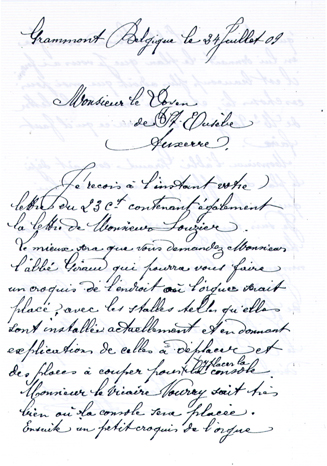 Grammont Belgique le 24 Juillet 09
Monsieur le Doyen
de St. Eusèbe
Auxerre.
Je reçois à l'instant votre
lettre du 23 ct contenant également
la lettre de Monsieur
Le mieux sera que vous demandez Monsieur
l'abbé Giraud qui pourra vous faire
un croquis de l'endroit où l'orgue serait
placé, avec les stalles telles qu'elles
sont installée actuellement et en donnant
explications de celles à déplacer et
des places à couper pour placer la
console
Monsieur le Vicaire Vourry sait très
bien où la console sera placée.
Ensuite un petit croquis de l'orgue